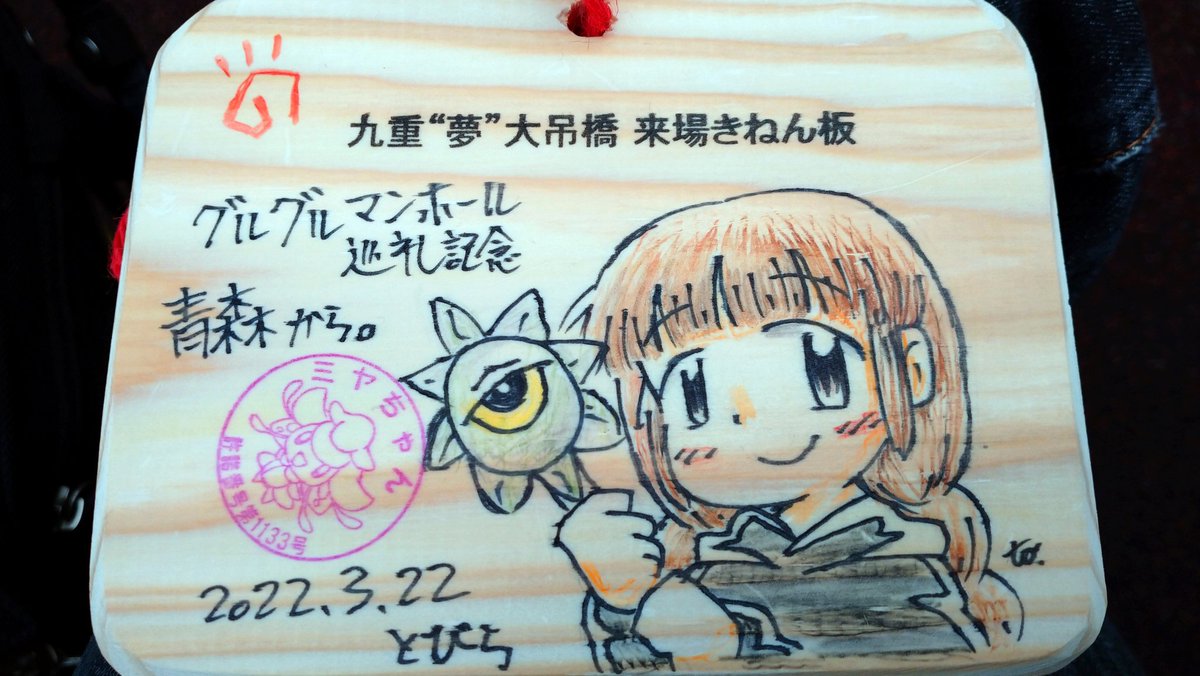 九重“夢”大吊橋 来場きねん板
グルグルマンホール
巡礼記念
青森から。
ミヤちゃん
許諾番号第1133号
2022.3.22
とびら